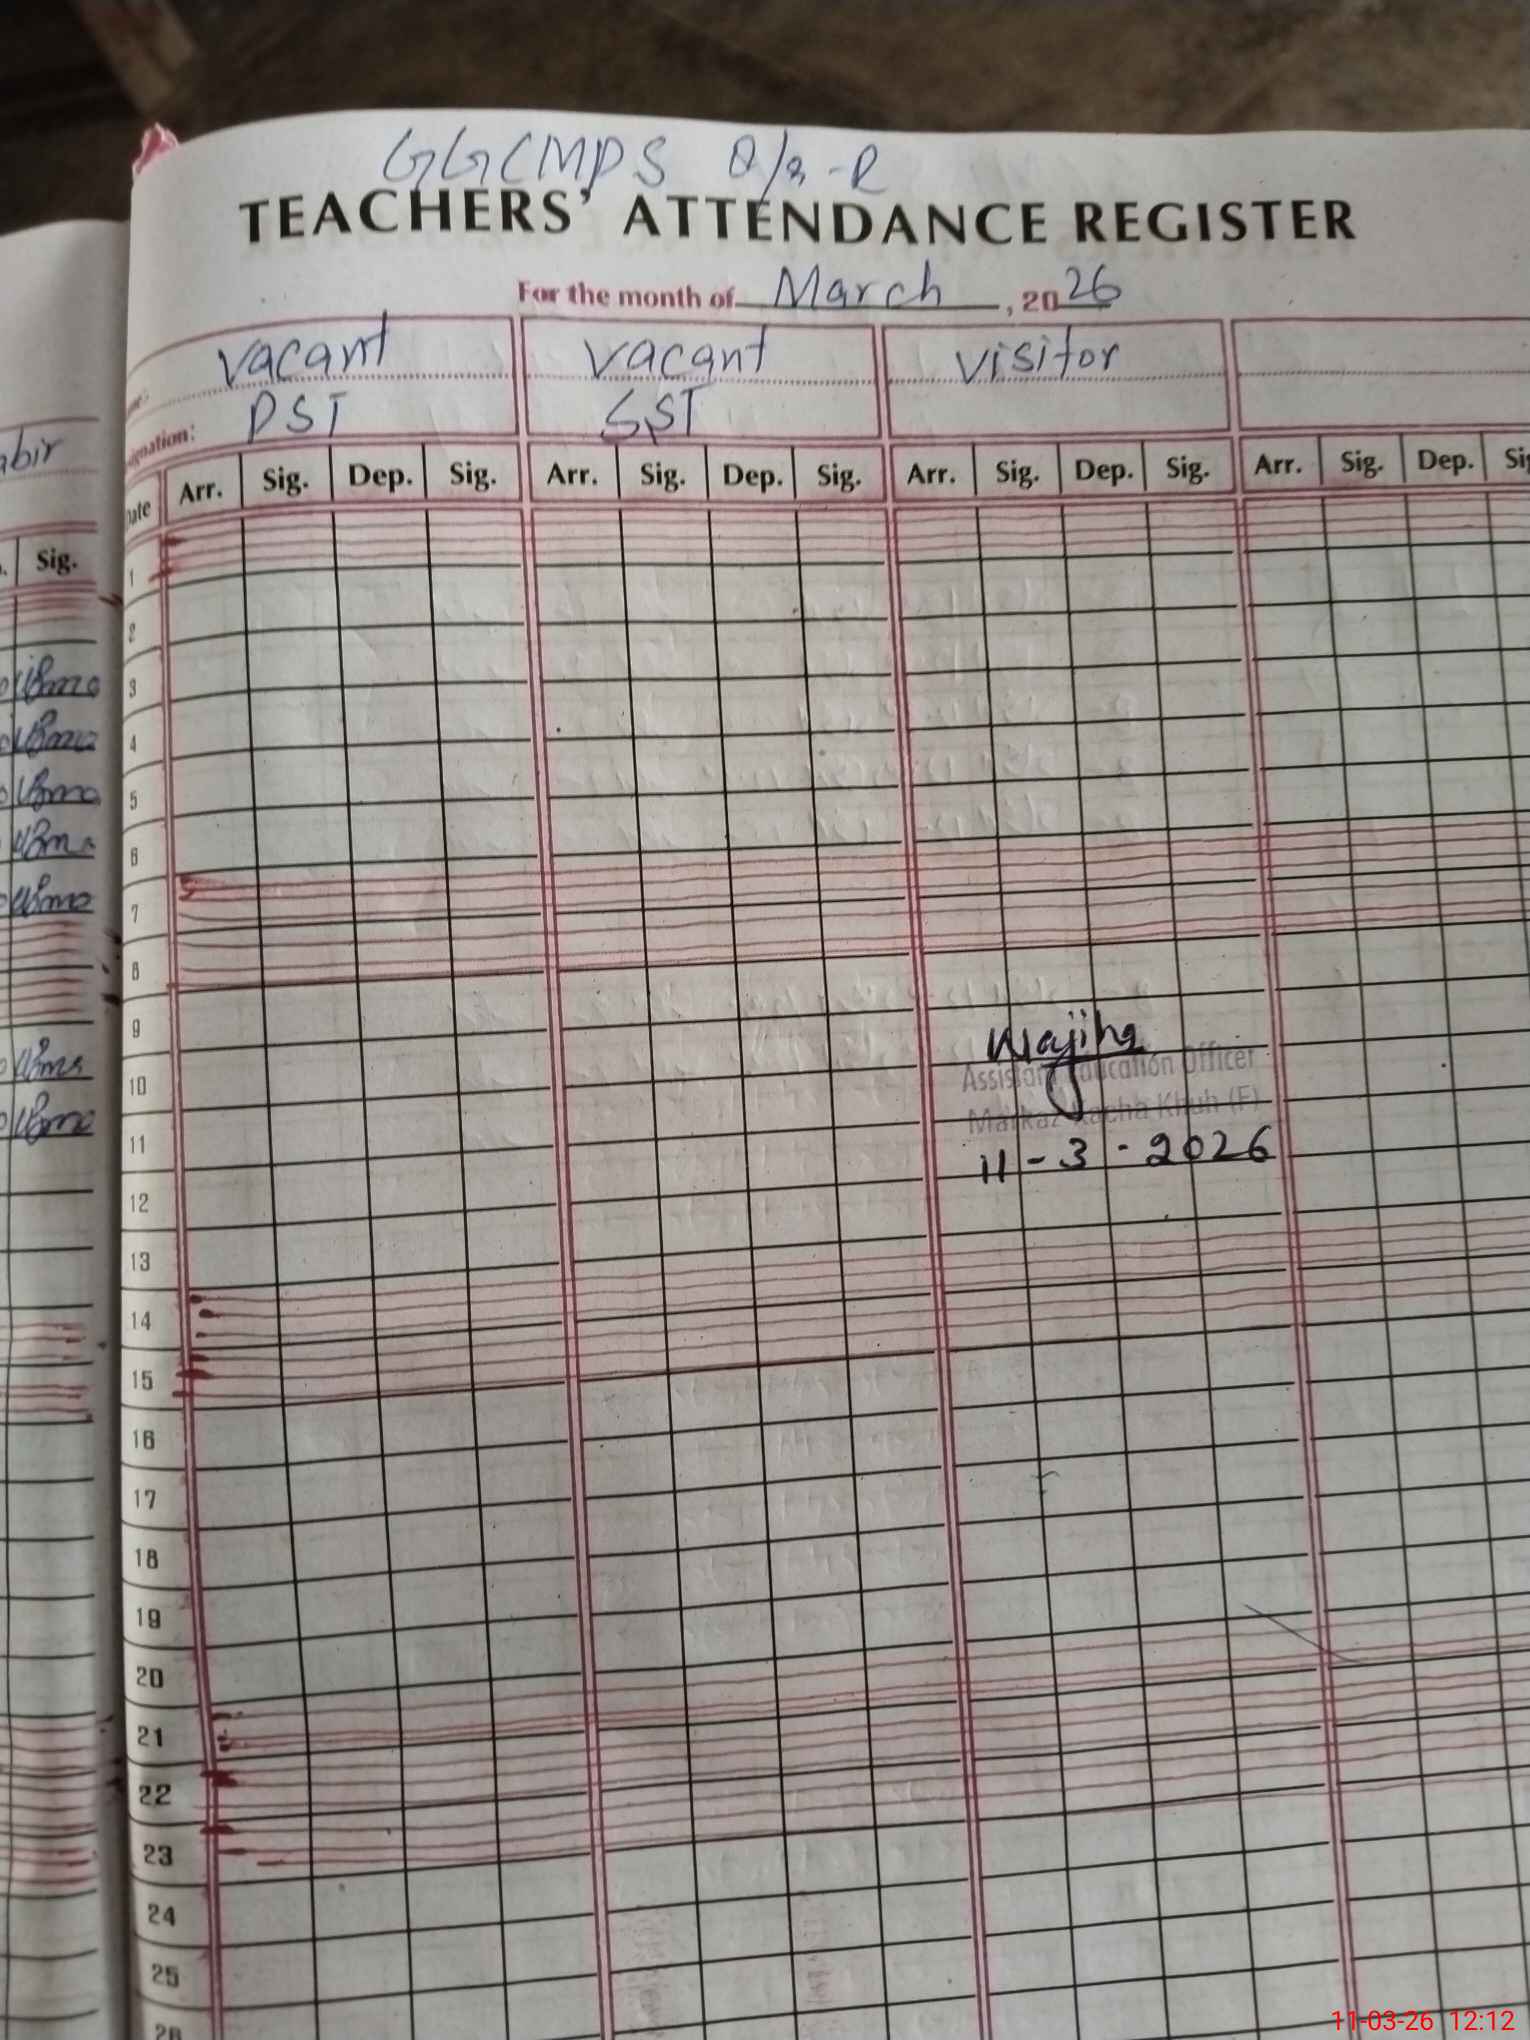 GGCMPS 8/9-R
TEACHERS' ATTENDANCE REGISTER
For the month of March, 2026
Vacant Vacant Visitor
ignation: PST SST
abir
Date Arr. Sig. Dep. Sig. Arr. Sig. Dep. Sig. Arr. Sig. Dep. Sig. Arr. Sig. Dep.
Sig.
1
2
3
4
5
6
7
8
9
10
11
12
13
14
15
16
17
18
19
20
21
22
23
24
25
26
Wajiha
Assistant Education Officer
Markaz Kacha Khuh (F)
11-3-2026
11-03-26 12:12